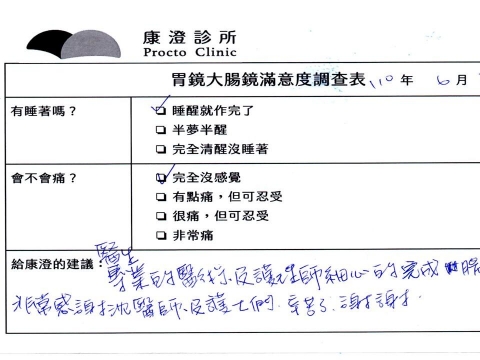 康澄診所
Procto Clinic
胃鏡大腸鏡滿意度調查表 110 年 6 月
有睡著嗎？
睡醒就作完了
半夢半醒
完全清醒沒睡著
會不會痛？
完全沒感覺
有點痛，但可忍受
很痛，但可忍受
非常痛
給康澄的建議：
醫生
專業的醫術、及護理師細心的完成
非常感謝沈醫師、及護士們．辛苦了．謝謝．